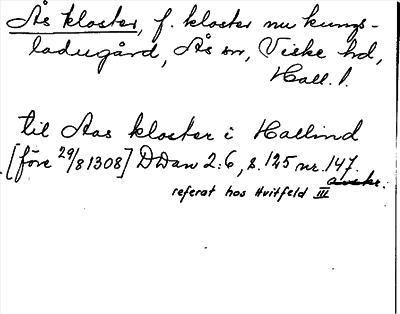 Ås kloster, f. kloster nu kungs-
ladugård, Ås sn, Viske hd,
Hall. l.
til Aas kloster i Hallind
[före 29/8 1308] DDan 2:6, s. 125 nr. 147.
avskr.
referat hos Hvitfeld III